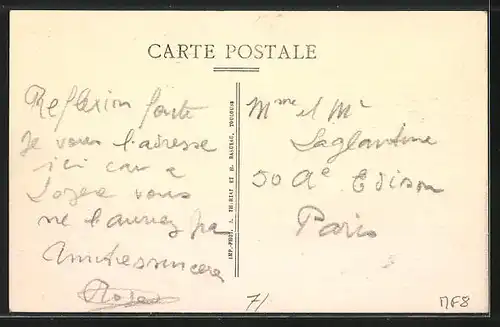 CARTE POSTALE
Reflexion faite
je vous l'adresse
ici car a
vous
ne l'aurez pas
Amitiés sincères
IMP.-PHOT. A. THIRIAT ET H. BASUYAU, TOULOUSE
Mme et Mr
Laglantine
50 Ae Edison
Paris
7/
MF8